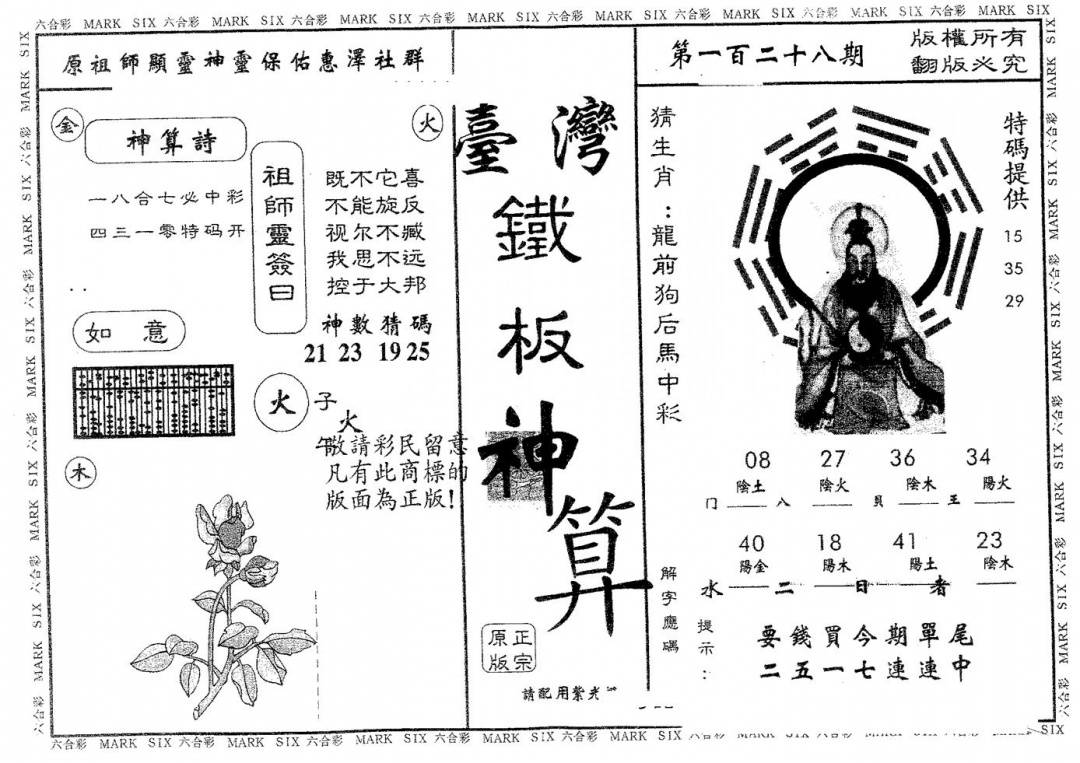 六合彩 MARK SIX 六合彩 MARK SIX 六合彩 MARK SIX 六合彩 MARK SIX 六合彩 MARK SIX 六合彩 MARK SIX 六合彩 MARK SIX 六合彩 MARK SIX
原祖師顯靈神靈保佑惠澤社群
金
神算詩
火
一八合七必中彩
四三一零特码开
祖師靈簽曰
既不它喜
不能旋反
视尔不臧
我思不远
控于大邦
神數猜碼
21 23 19 25
如意
火
子
火
午
敬請彩民留意
凡有此商標的
版面為正版!
木
臺灣
鐵
板
神
算
正宗
原版
請配用紫光
第一百二十八期
版權所有
翻版必究
猜生肖:龍前狗后馬中彩
特碼提供
15
35
29
08 27 36 34
陰土 陰火 陰木 陽火
门 八 貝 王
40 18 41 23
陽金 陽木 陽土 陰木
水 二 日 者
解字應碼
提示:
要錢買今期單尾
二五一七連連中
六合彩 MARK SIX 六合彩 MARK SIX 六合彩 MARK SIX 六合彩 MARK SIX 六合彩 MARK SIX